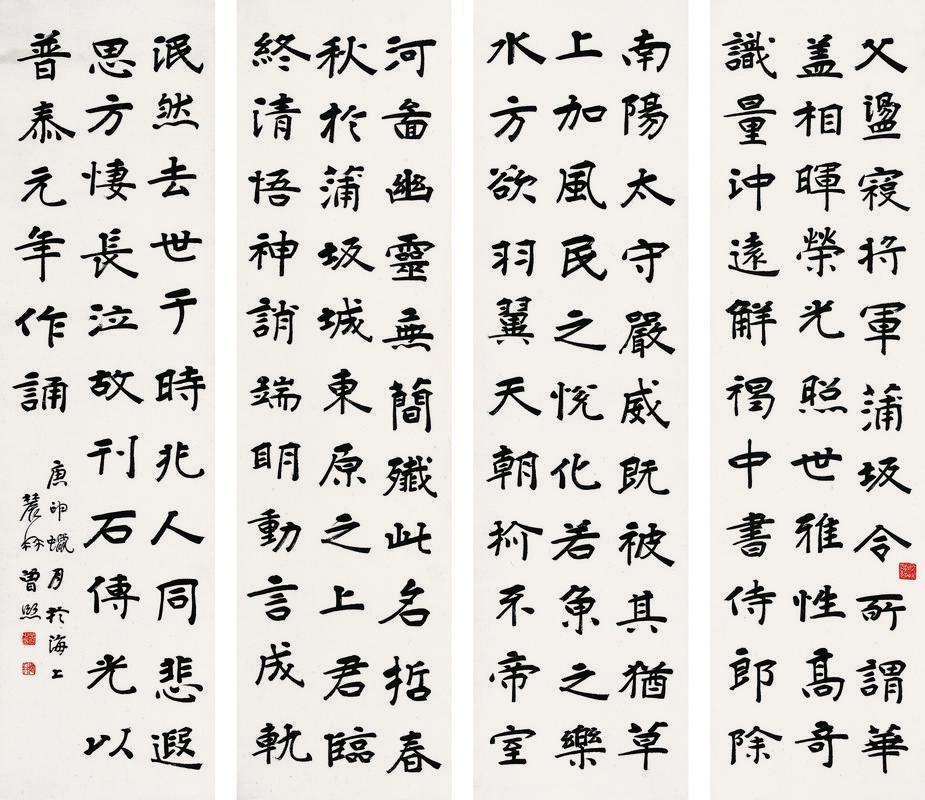 父盪寇將軍蒲坂令所謂華
盖相暉榮光照世雅性高奇
識量沖遠解褐中書侍郎除
南陽太守嚴威既被其猶草
上加風民之悅化若魚之樂
水方欲羽翼天朝抓牙帝室
河啚幽靈無簡殲此名哲春
秋於蒲坂城東原之上君臨
終清悟神誚端明動言成軌
泯然去世于時兆人同悲遐
思方悽長泣故刊石傳光以
普泰元年作誦
庚申蠟月於海上
農髯曾熙